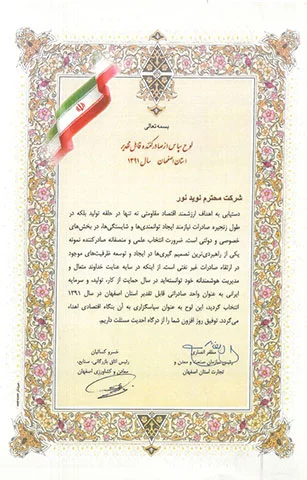 بسمه تعالی
لوح سپاس از صادرکننده قابل تقدیر
استان اصفهان سال ۱۳۹۱
شرکت محترم نوید نور
دستیابی به اهداف ارزشمند اقتصاد مقاومتی نه تنها در حلقه تولید بلکه در
طول زنجیره صادرات نیازمند ایجاد توانمندی‌ها و شایستگی‌ها، در بخش‌های
خصوصی و دولتی است. ضرورت انتخاب علمی و منصفانه صادرکننده نمونه
یکی از راهبردی‌ترین تصمیم گیری‌ها در ایجاد و توسعه ظرفیت‌های موجود
در ارتقاء صادرات غیر نفتی است. از اینکه در سایه عنایت خداوند متعال و
مدیریت هوشمندانه خود توانسته‌اید در سال حمایت از کار، تولید، و سرمایه
ایرانی به عنوان واحد صادراتی قابل تقدیر استان اصفهان در سال ۱۳۹۱
انتخاب گردید، این لوح به عنوان سپاسگزاری به آن بنگاه اقتصادی اهداء
می‌گردد. توفیق روز افزون شما را از درگاه احدیت مسئلت داریم.
مظفر انصاری
رئیس سازمان صنعت و معدن و
تجارت استان اصفهان
خسرو کسائیان
رئیس اتاق بازرگانی، صنایع،
معادن و کشاورزی اصفهان